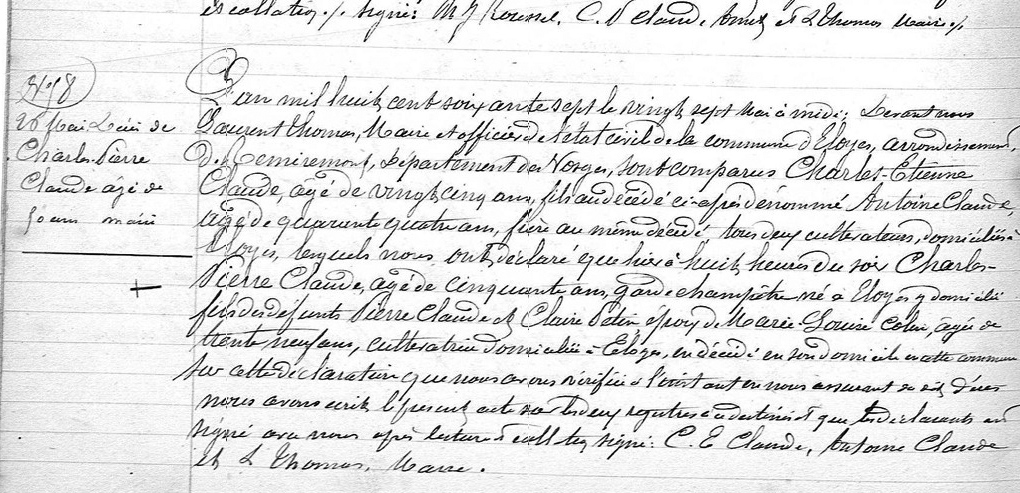 et collation /. Signé: M J Roussel, C. V Claude, Amet et L Thomas Maire /.
N° 8
26 Mai Décès de
Charles-Pierre
Claude âgé de
50 ans marié
L'an mil huit cent soixante sept le vingt sept Mai à midi; Devant nous
Laurent Thomas, Maire et officier de l'état civil de la commune d'Eloyes, arrondissement
de Remiremont, Département des Vosges, sont comparus Charles-Etienne
Claude, âgé de vingt cinq ans, fils au décédé ci-après dénommé Antoine Claude,
âgé de quarante quatre ans, frère au même décédé tous deux cultivateurs, domiciliés à
Eloyes, lesquels nous ont déclaré que hier à huit heures du soir Charles-
Pierre Claude, âgé de cinquante ans, garde champêtre né à Eloyes y domicilié
fils des défunts Pierre Claude et Claire Petin époux de Marie-Louise Colin, âgée de
trente neuf ans, cultivatrice domiciliée à Eloyes, est décédé en son domicile en cette commune
Sur cette déclaration que nous avons vérifiée à l'instant en nous assurant du dit décès
nous avons écrit le présent acte sur les deux registres à ce destinés et que les déclarants ont
signé avec nous après lecture et coll Signé: C. E Claude, Antoine Claude
et L Thomas, Maire.